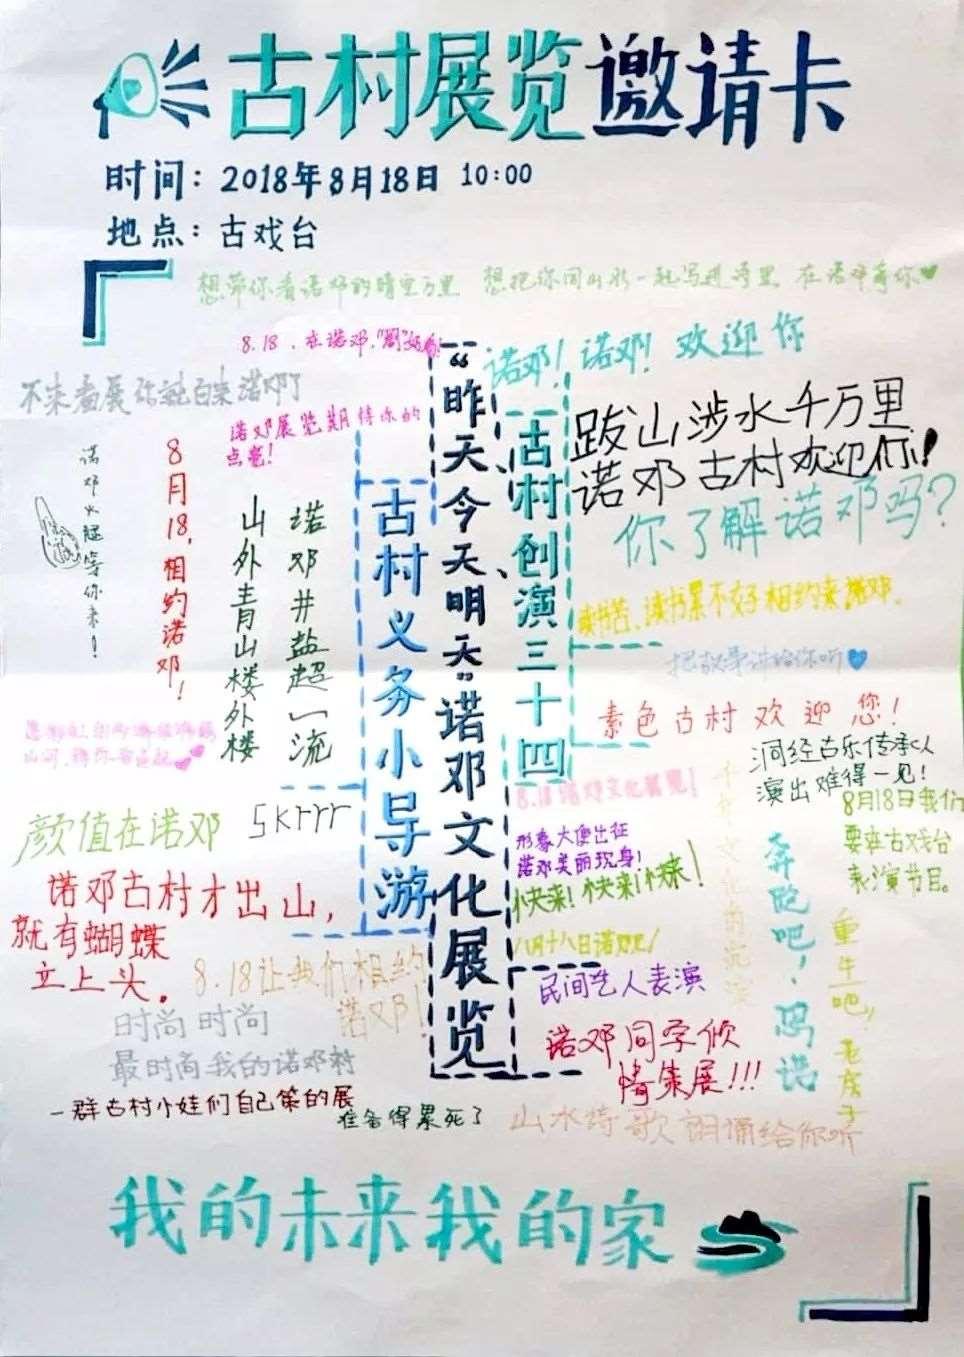 古村展览邀请卡
时间：2018年8月18日 10:00
地点：古戏台
想带你看诺邓的晴空万里 想把你同山水一起写进诗里 在诺邓等你
8.18，在诺邓，
诺邓！诺邓！欢迎你
不来看展你就白来诺邓了
诺邓展览期待你的
点亮！
跋山涉水千万里
诺邓古村欢迎你！
你了解诺邓吗？
诺邓火腿等你来！
8月18，相约诺邓！
诺邓井盐超一流
山外青山楼外楼
古村义务小导游
“昨天、今天、明天”诺邓文化展览
古村创演三十四
读书苦、读书累不如相约来诺邓。
把故事讲给你听
素色古村欢迎您！
洞经古乐传承人
演出难得一见！
8.18诺邓文化展览！
形象大使出征
诺邓美丽现身！
快来！快来！快来！
八月十八日诺邓见
8月18日我们
要在古戏台
表演节目。
千年文化的沉淀
奔跑吧！
重生吧，老房子
颜值在诺邓
skrrr
诺邓古村才出山，
就有蝴蝶
立上头。
8.18让我们相约
诺邓！
时尚时尚
最时尚我的诺邓村
民间艺人表演
诺邓同学倾
情策展！！！
一群古村小娃们自己策的展
准备得累死了
山水诗歌朗诵给你听
我的未来我的家